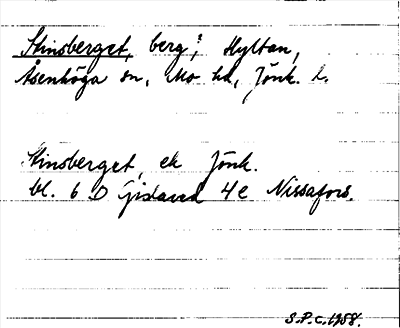 Stinsberget, berg; Hyltan,
Åsenhöga sn, Mo hd, Jönk. l.
Stinsberget, ek Jönk.
bl. 6 D Gislaved 4e Nissafors.
S.P.C. 1958.